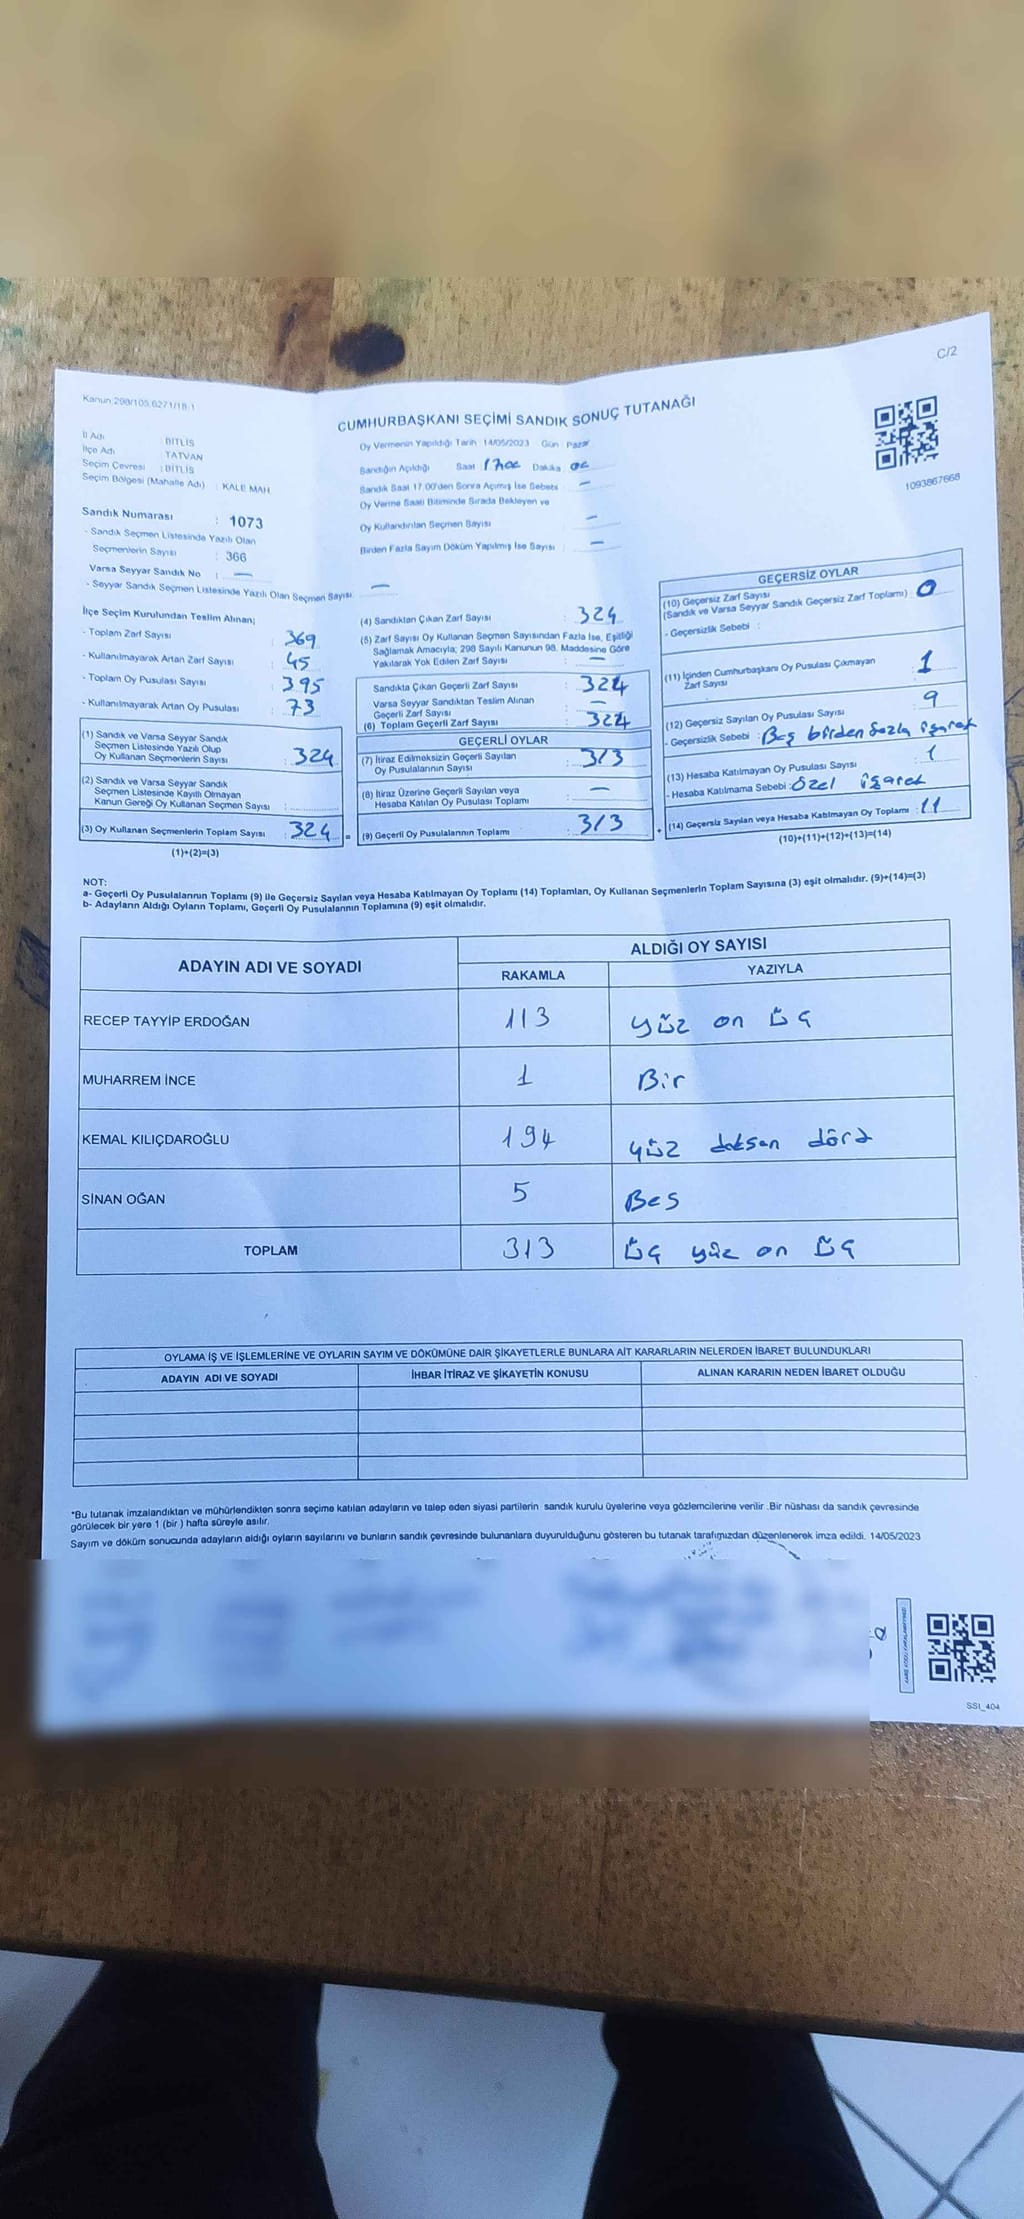 C/2
Kanun:298/105,6271/18.1
CUMHURBAŞKANI SEÇİMİ SANDIK SONUÇ TUTANAĞI
1093867668
İl Adı : BİTLİS
İlçe Adı : TATVAN
Seçim Çevresi : BİTLİS
Seçim Bölgesi (Mahalle Adı) : KALE MAH
Sandık Numarası : 1073
- Sandık Seçmen Listesinde Yazılı Olan
Seçmenlerin Sayısı : 366
Varsa Seyyar Sandık No : —
- Seyyar Sandık Seçmen Listesinde Yazılı Olan Seçmen Sayısı : —
Oy Vermenin Yapıldığı Tarih 14/05/2023 Gün Pazar
Sandığın Açıldığı Saat 17 00 Dakika 00
Sandık Saat 17.00'den Sonra Açımış İse Sebebi : —
Oy Verme Saati Bitiminde Sırada Bekleyen ve
Oy Kullandırılan Seçmen Sayısı : —
Birden Fazla Sayım Döküm Yapılmış İse Sayısı : —
İlçe Seçim Kurulundan Teslim Alınan;
- Toplam Zarf Sayısı : 369
- Kullanılmayarak Artan Zarf Sayısı : 45
- Toplam Oy Pusulası Sayısı : 395
- Kullanılmayarak Artan Oy Pusulası : 73
(1) Sandık ve Varsa Seyyar Sandık
Seçmen Listesinde Yazılı Olup
Oy Kullanan Seçmenlerin Sayısı : 324
(2) Sandık ve Varsa Seyyar Sandık
Seçmen Listesinde Kayıtlı Olmayan
Kanun Gereği Oy Kullanan Seçmen Sayısı :
(3) Oy Kullanan Seçmenlerin Toplam Sayısı : 324 =
(1)+(2)=(3)
(4) Sandıktan Çıkan Zarf Sayısı : 324
(5) Zarf Sayısı Oy Kullanan Seçmen Sayısından Fazla İse, Eşitliği
Sağlamak Amacıyla; 298 Sayılı Kanunun 98. Maddesine Göre
Yakılarak Yok Edilen Zarf Sayısı : —
Sandıkta Çıkan Geçerli Zarf Sayısı : 324
Varsa Seyyar Sandıktan Teslim Alınan
Geçerli Zarf Sayısı : —
(6) Toplam Geçerli Zarf Sayısı : 324
GEÇERLİ OYLAR
(7) İtiraz Edilmeksizin Geçerli Sayılan
Oy Pusulalarının Sayısı : 313
(8) İtiraz Üzerine Geçerli Sayılan veya
Hesaba Katılan Oy Pusulası Toplamı : —
(9) Geçerli Oy Pusulalarının Toplamı : 313 +
GEÇERSİZ OYLAR
(10) Geçersiz Zarf Sayısı
(Sandık ve Varsa Seyyar Sandık Geçersiz Zarf Toplamı) : 0
- Geçersizlik Sebebi :
(11) İçinden Cumhurbaşkanı Oy Pusulası Çıkmayan
Zarf Sayısı : 1
(12) Geçersiz Sayılan Oy Pusulası Sayısı : 9
- Geçersizlik Sebebi : Beş birden fazla işaret
(13) Hesaba Katılmayan Oy Pusulası Sayısı : 1
- Hesaba Katılmama Sebebi : özel işaret
(14) Geçersiz Sayılan veya Hesaba Katılmayan Oy Toplamı : 11
(10)+(11)+(12)+(13)=(14)
NOT:
a- Geçerli Oy Pusulalarının Toplamı (9) ile Geçersiz Sayılan veya Hesaba Katılmayan Oy Toplamı (14) Toplamları, Oy Kullanan Seçmenlerin Toplam Sayısına (3) eşit olmalıdır. (9)+(14)=(3)
b- Adayların Aldığı Oyların Toplamı, Geçerli Oy Pusulalarının Toplamına (9) eşit olmalıdır.
ADAYIN ADI VE SOYADI
ALDIĞI OY SAYISI
RAKAMLA YAZIYLA
RECEP TAYYİP ERDOĞAN 113 yüz on üç
MUHARREM İNCE 1 Bir
KEMAL KILIÇDAROĞLU 194 yüz doksan dört
SİNAN OĞAN 5 Bes
TOPLAM 313 üç yüz on üç
OYLAMA İŞ VE İŞLEMLERİNE VE OYLARIN SAYIM VE DÖKÜMÜNE DAİR ŞİKAYETLERLE BUNLARA AİT KARARLARIN NELERDEN İBARET BULUNDUKLARI
ADAYIN ADI VE SOYADI İHBAR İTİRAZ VE ŞİKAYETİN KONUSU ALINAN KARARIN NEDEN İBARET OLDUĞU
*Bu tutanak imzalandıktan ve mühürlendikten sonra seçime katılan adayların ve talep eden siyasi partilerin sandık kurulu üyelerine veya gözlemcilerine verilir .Bir nüshası da sandık çevresinde
görülecek bir yere 1 (bir ) hafta süreyle asılır.
Sayım ve döküm sonucunda adayların aldığı oyların sayılarını ve bunların sandık çevresinde bulunanlara duyurulduğunu gösteren bu tutanak tarafımızdan düzenlenerek imza edildi. 14/05/2023
SSI_404